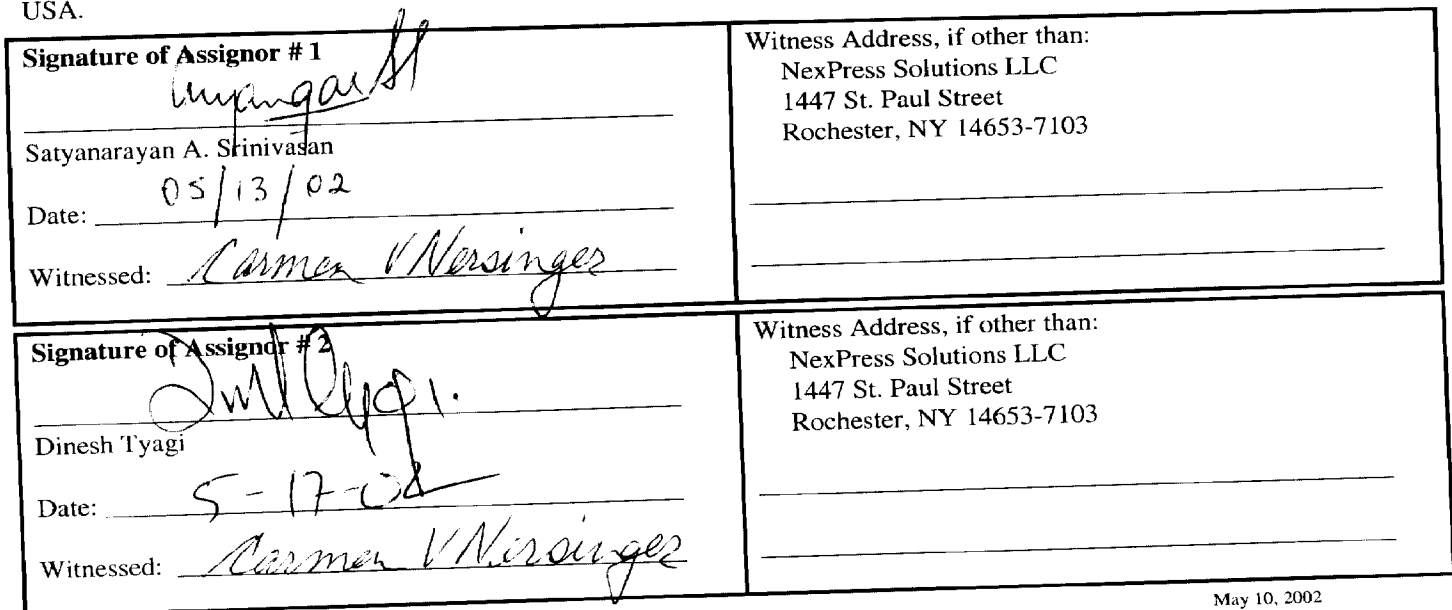 USA.
Signature of Assignor # 1
Satyanarayan A. Srinivasan
Date: 05/13/02
Witnessed: Carmen V Nersinger
Witness Address, if other than:
NexPress Solutions LLC
1447 St. Paul Street
Rochester, NY 14653-7103
Signature of Assignor # 2
Dinesh Tyagi
Date: 5-17-02
Witnessed: Carmen V Nersinger
Witness Address, if other than:
NexPress Solutions LLC
1447 St. Paul Street
Rochester, NY 14653-7103
May 10, 2002